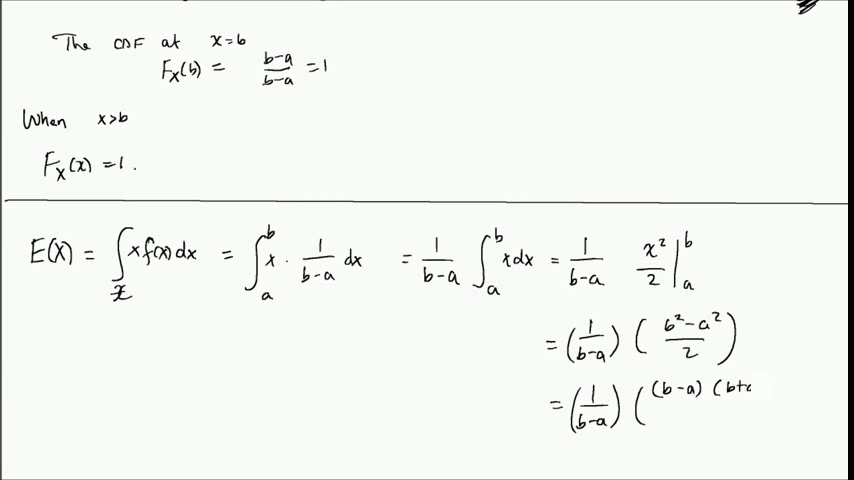 The CDF at x=b
F_X(b) = \frac{b-a}{b-a} = 1
When x>b
F_X(x) = 1.
E(X) = \int_{\mathcal{X}} x f(x) dx = \int_a^b x \cdot \frac{1}{b-a} dx = \frac{1}{b-a} \int_a^b x dx = \frac{1}{b-a} \frac{x^2}{2} |_a^b
= (\frac{1}{b-a}) (\frac{b^2-a^2}{2})
= (\frac{1}{b-a}) ( (b-a) (b+